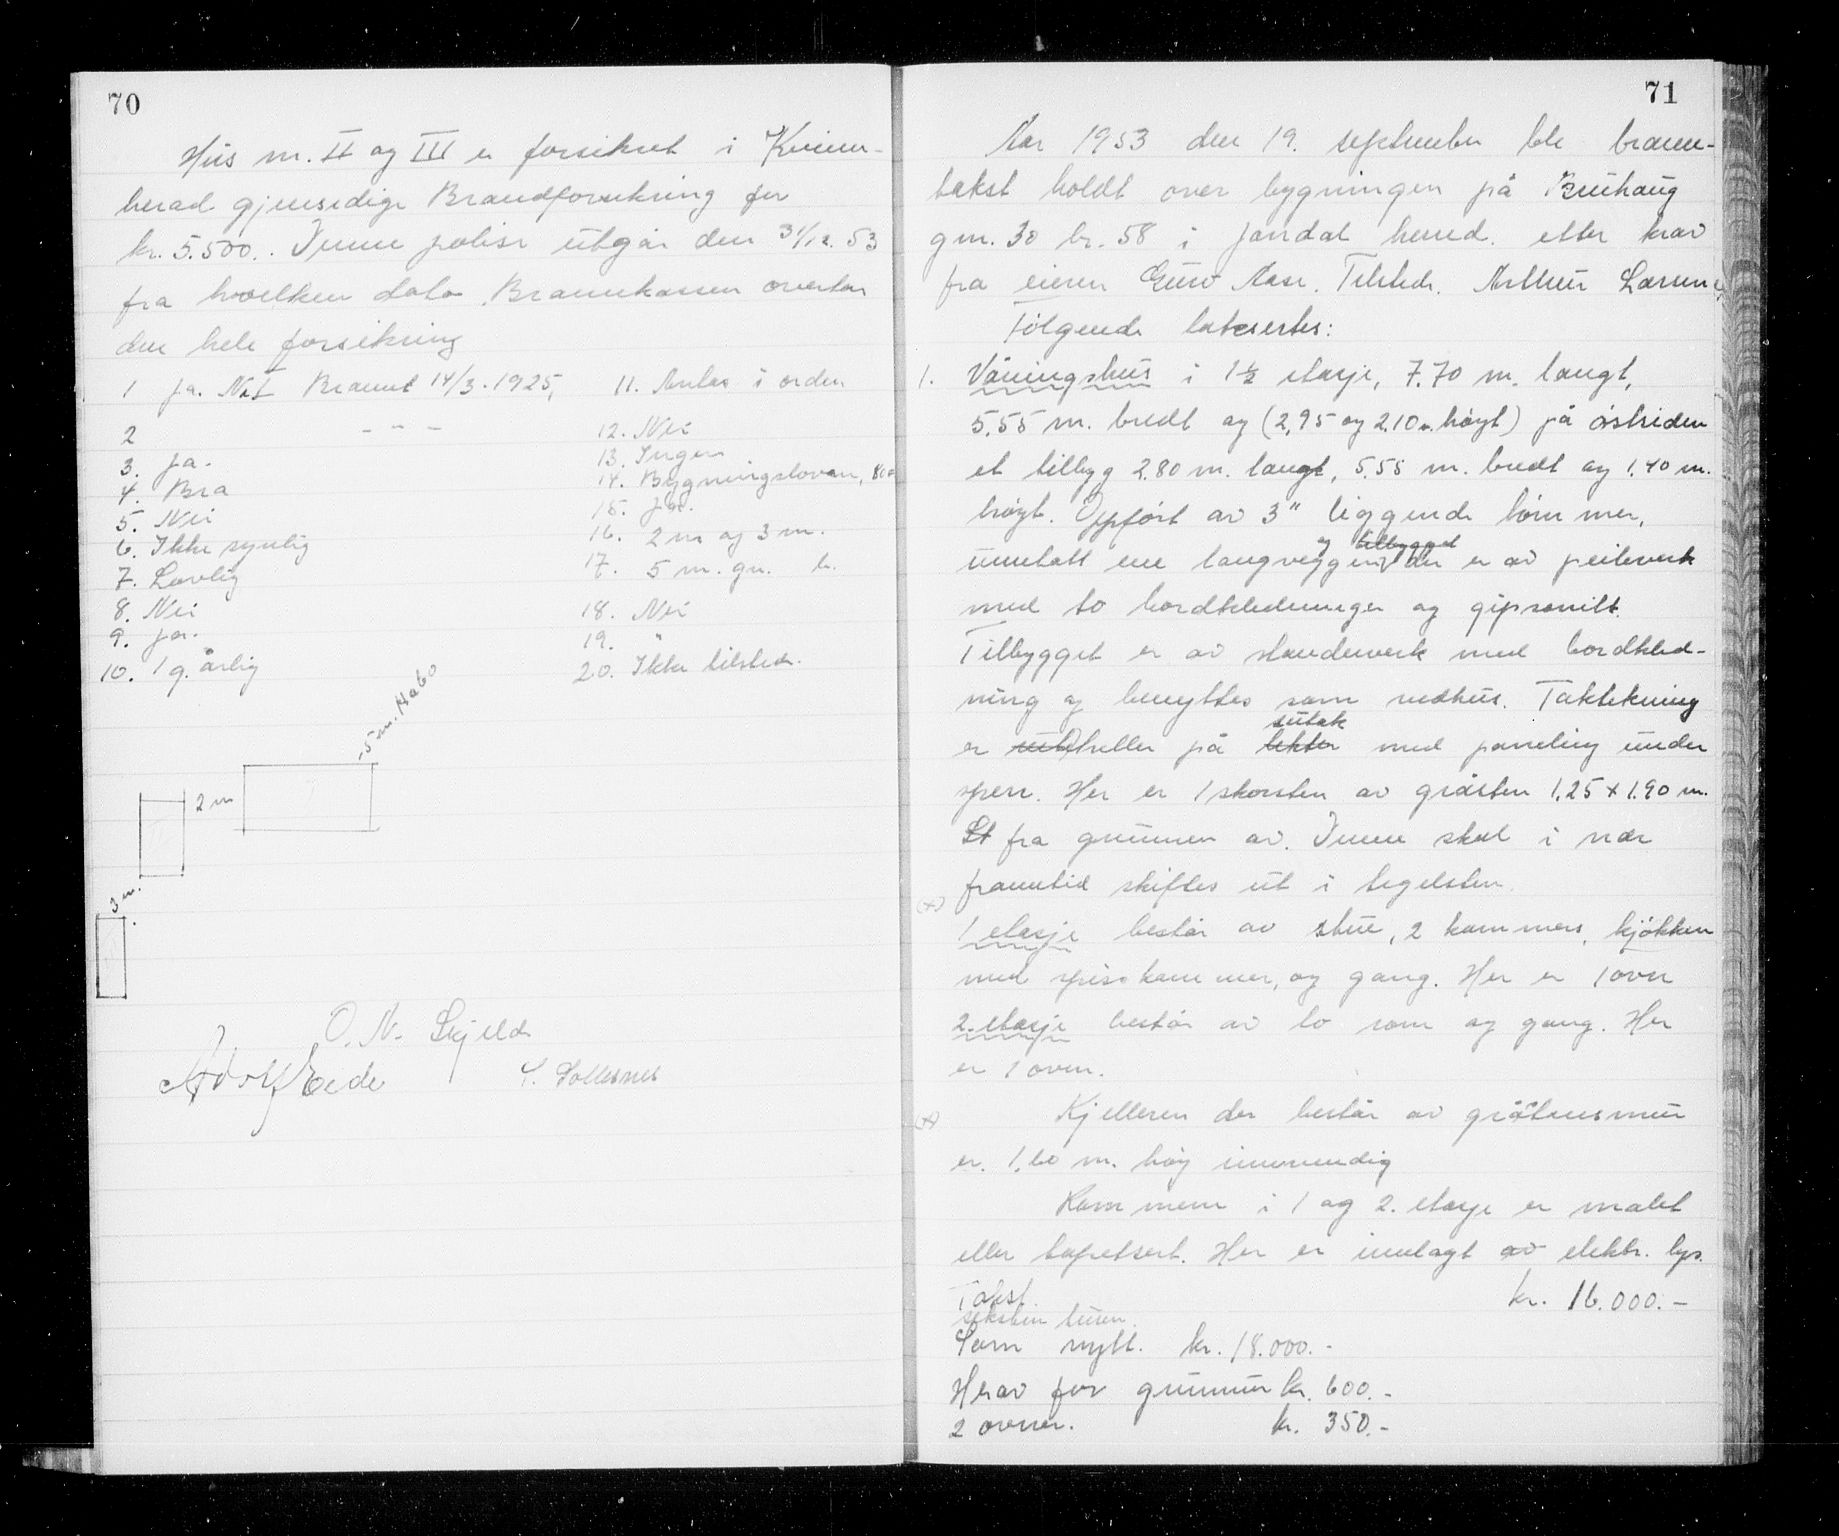 70
Hus nr. II og III er forsikret i Kvinn-
herad gjensidige Brandforsikring for
kr. 5.500.. Denne polise utgår den 31/12.53
fra hvilken dato Brannkassen overtar
den hele forsikring
1 Ja. Nr I Brannt 14/3. 1925,
2 - " -
3. Ja.
4. Bra
5. Nei
6. Ikke synlig
7. Lovlig
8. Nei
9. Ja.
10. 1 g. årlig
11. Antas i orden
12. Nei
13. Ingen
14. Bygningslovan, 800
15. Ja.
16. 2 m og 3 m.
17. 5 m. gn. b.
18. Nei
19. "
20. Ikke tilstede.
5 m. Habo
2 m
3 m.
O. N. Skjeldr
Adolf Eide
S. Sollesnes
71
Aar 1953 den 19. september ble brann-
takst holdt over bygningen på Bruhaug
gnr. 30 br. 58 i Jondal herred. etter krav
fra eieren Guro Aase. Tilstede. Arthur Larsen
Følgende taksertes:
1. Våningshus i 1½ etasje, 7.70 m. langt,
5.55 m. bredt og (2,95 og 2.10 m. høyt) på østsiden
et tilbyg 2.80 m. langt, 5.55 m. bredt og 1.40 m.
høyt. Oppført av 3" liggende tømmer,
og tilbygget
unntatt ene langveggen der er av peileverk
med to bordkledninger og gipsonitt.
Tilbygget er av standerverk med bordkled-
ning og benyttes som vedhus. Taktekning
sutak
er heller på lekter med paneling under
sperr. Her er 1 skorsten av gråsten 1,25 x 1.90 m.
St fra grunnen av. Denne skal i nær
framtid skiftes ut i tegelsten.
(x)
1 etasje består av stue, 2 kammers, kjøkken
med spiskammer, og gang. Her er 1 ovn
2. etasje består av to rom og gang. Her
er 1 oven.
(x)
Kjelleren der består av gråstensmur
er. 1.60 m. høy innvendig
Rommene i 1 og 2. etasje er malet
eller tapetsert. Her er innlagt av elektr. lys.
Takst. kr. 16.000.-
seksten tusen.
Som nytt. kr. 18.000.-
Herav for grunnmur kr. 600.-
2 ovner. kr. 350.-